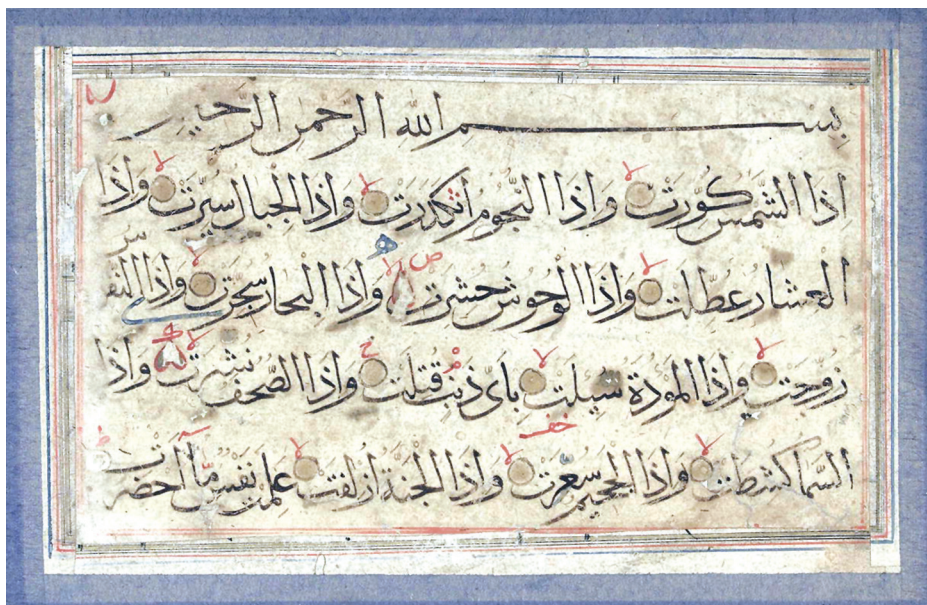 بسم الله الرحمن الرحيم
اذا الشمس كورت واذا النجوم انكدرت واذا الجبال سيرت واذا
العشار عطلت واذا الوحوش حشرت واذا البحار سجرت واذا النفو
زوجت واذا الموءدة سيلت باى ذنب قتلت واذا الصحف نشرت واذا
السما كشطت واذا الجحيم سعرت واذا الجنة ازلفت علمت نفس ما احضرت